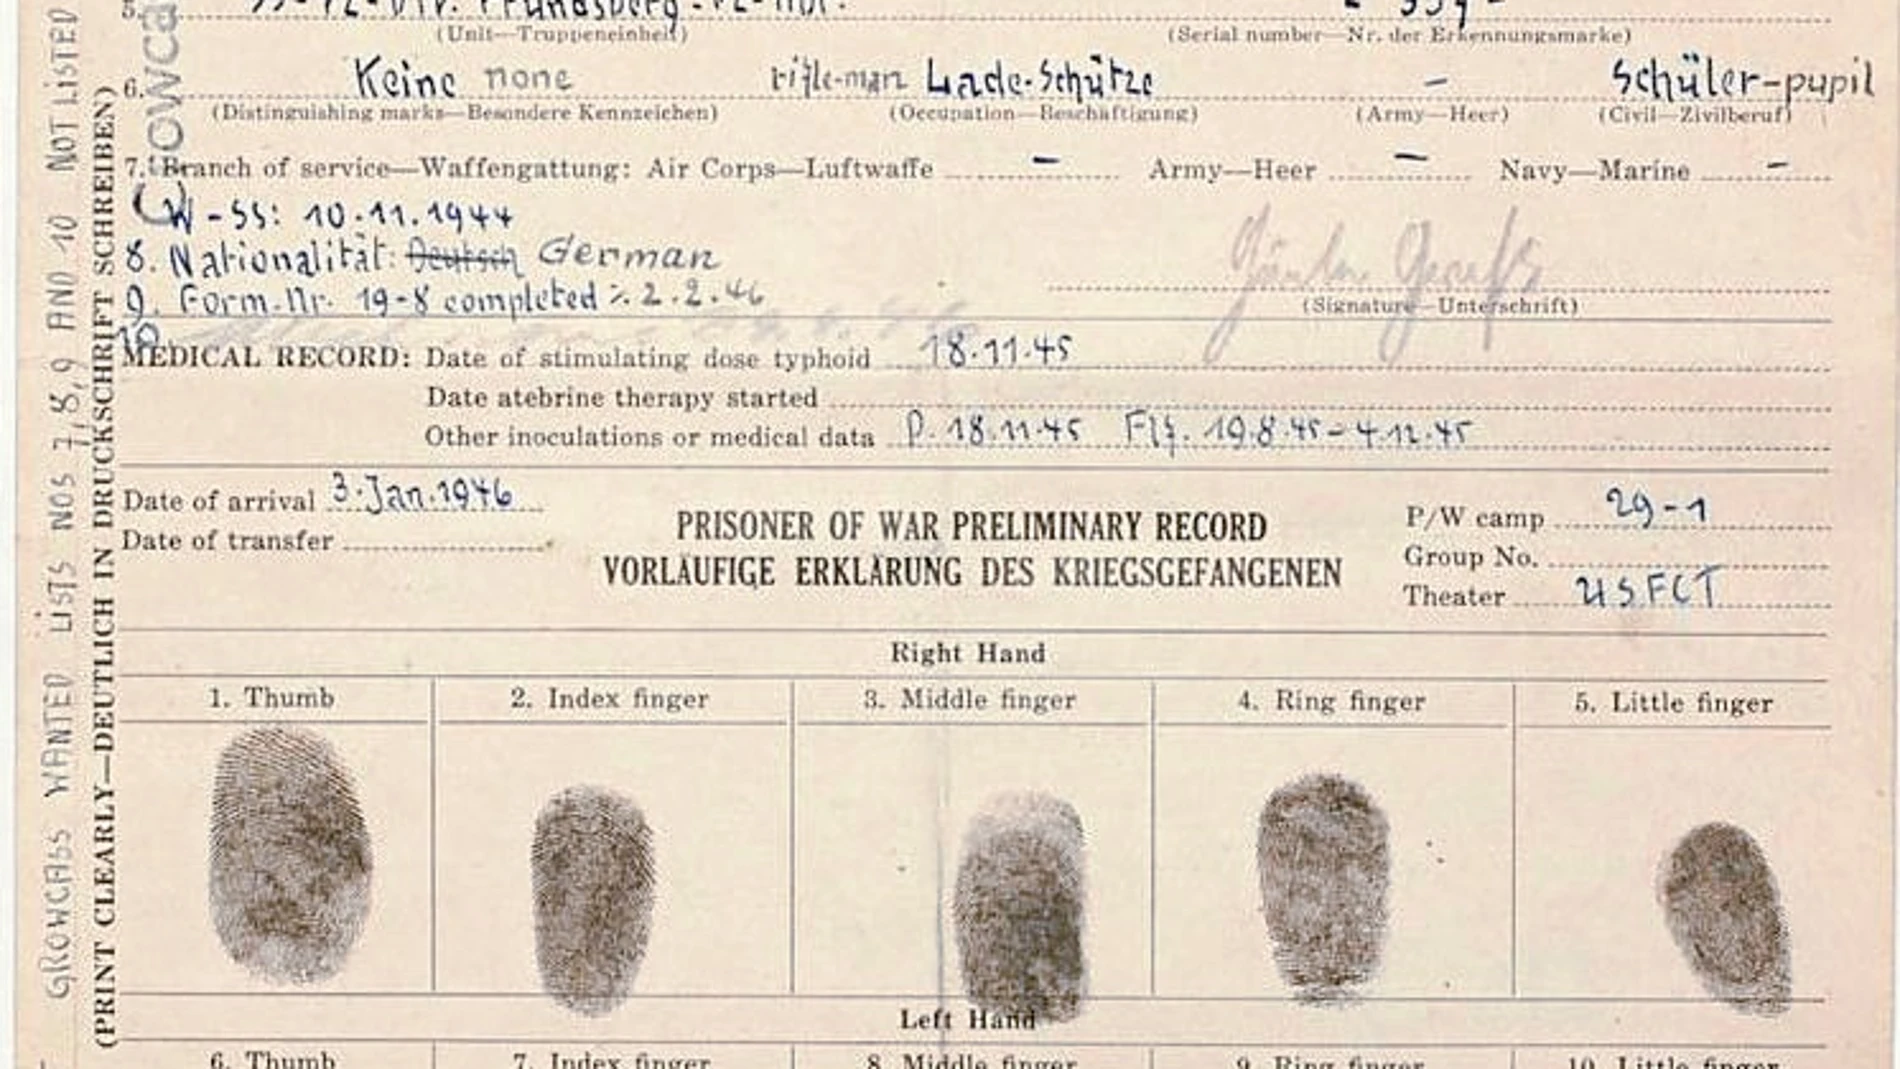 5.
(Unit—Truppeneinheit) (Serial number—Nr. der Erkennungsmarke)
6. Keine none rifle-man Lade-Schütze – Schüler-pupil
(Distinguishing marks—Besondere Kennzeichen) (Occupation—Beschäftigung) (Army—Heer) (Civil—Zivilberuf)
7. Branch of service—Waffengattung: Air Corps—Luftwaffe – Army—Heer – Navy—Marine –
W-SS: 10.11.1944
8. Nationalität: Deutsch German
9. Form.-Nr. 19-8 completed 2.2.46
(Signature—Unterschrift)
10.
MEDICAL RECORD: Date of stimulating dose typhoid 18.11.45
Date atebrine therapy started
Other inoculations or medical data P. 18.11.45 19.8.45-4.12.45
Date of arrival 3.Jan.1946
Date of transfer
PRISONER OF WAR PRELIMINARY RECORD
VORLÄUFIGE ERKLÄRUNG DES KRIEGSGEFANGENEN
P/W camp 29-1
Group No.
Theater
Right Hand
1. Thumb 2. Index finger 3. Middle finger 4. Ring finger 5. Little finger
Left Hand
6. Thumb 7. Index finger 8. Middle finger 9. Ring finger 10. Little finger
(PRINT CLEARLY—DEUTLICH IN DRUCKSCHRIFT SCHREIBEN)
WANTED LISTS NOS 7,8,9 AND 10 NOT LISTED